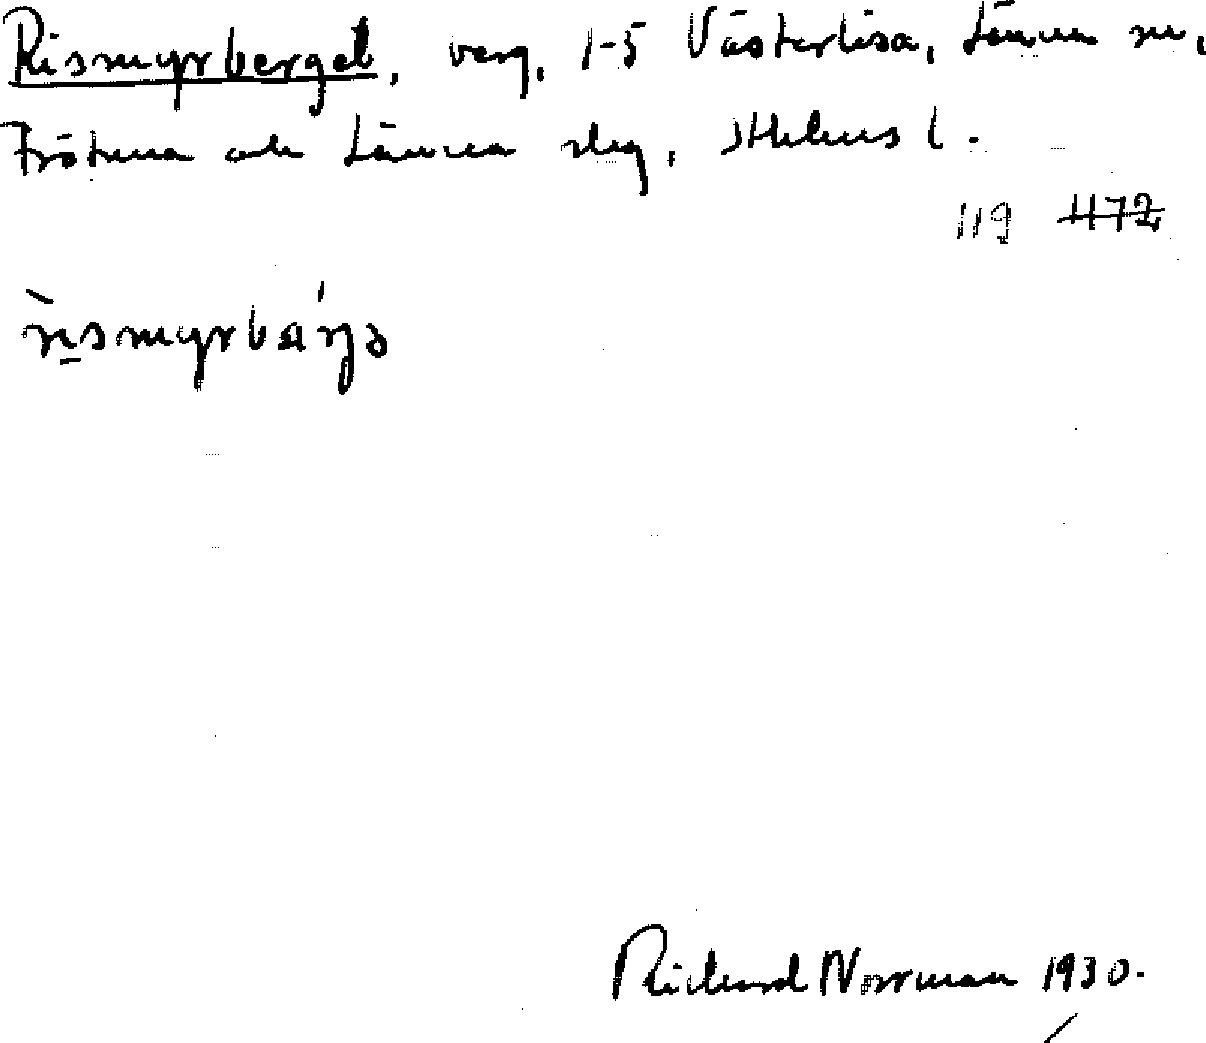 Rismyrberget, berg, 1-5 Västerlisa, Länna sn,
Frötuna och Länna slag, Sthlms l.
119 472
rismyrbärjə
Richard Norrman 1930.